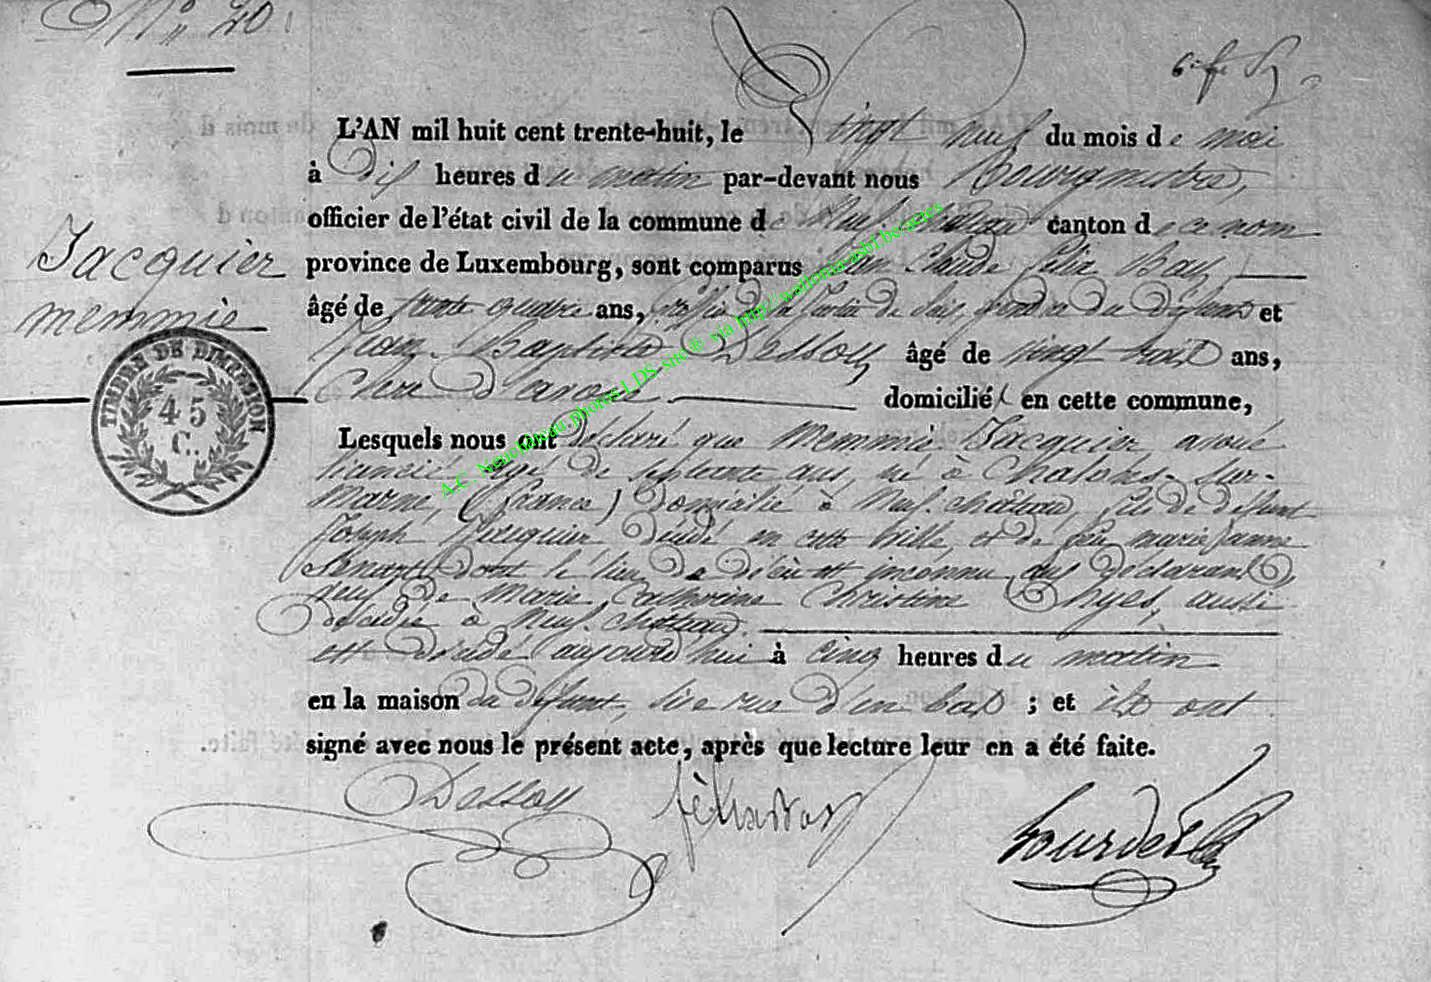 N° 20.
L'AN mil huit cent trente-huit, le vingt neuf du mois de mai
à dix heures du matin par-devant nous Bourgmestre,
officier de l'état civil de la commune de Neufchâteau canton de ce nom
Jacquier
memmie
province de Luxembourg, sont comparus Claude
âgé de trente quatre ans, et
Jean Baptiste Dessoy âgé de vingt huit ans,
domicilié en cette commune,
TIMBRE DE DIMENSION
45
C.
Lesquels nous ont déclaré que Memmie Jacquier avoué
licencié âgé de septante ans, né à Chalons-sur-
marne, (france) domicilié à Neufchâteau, fils de défunt
Joseph Jacquier décédé en cette ville, et de feue marie Jeanne
dont le lieu de décès est inconnu aux déclarants,
veuf de Marie Catherine Christine Thyes, aussi
décédée à Neufchâteau.
est décédé aujourd'hui à cinq heures du matin
en la maison du défunt, sise rue d'en bas ; et ils ont
signé avec nous le présent acte, après que lecture leur en a été faite.
Dessoy
A.C. Neufchâteau photos LDS site ® via http://wallonia-asbl.be/actes